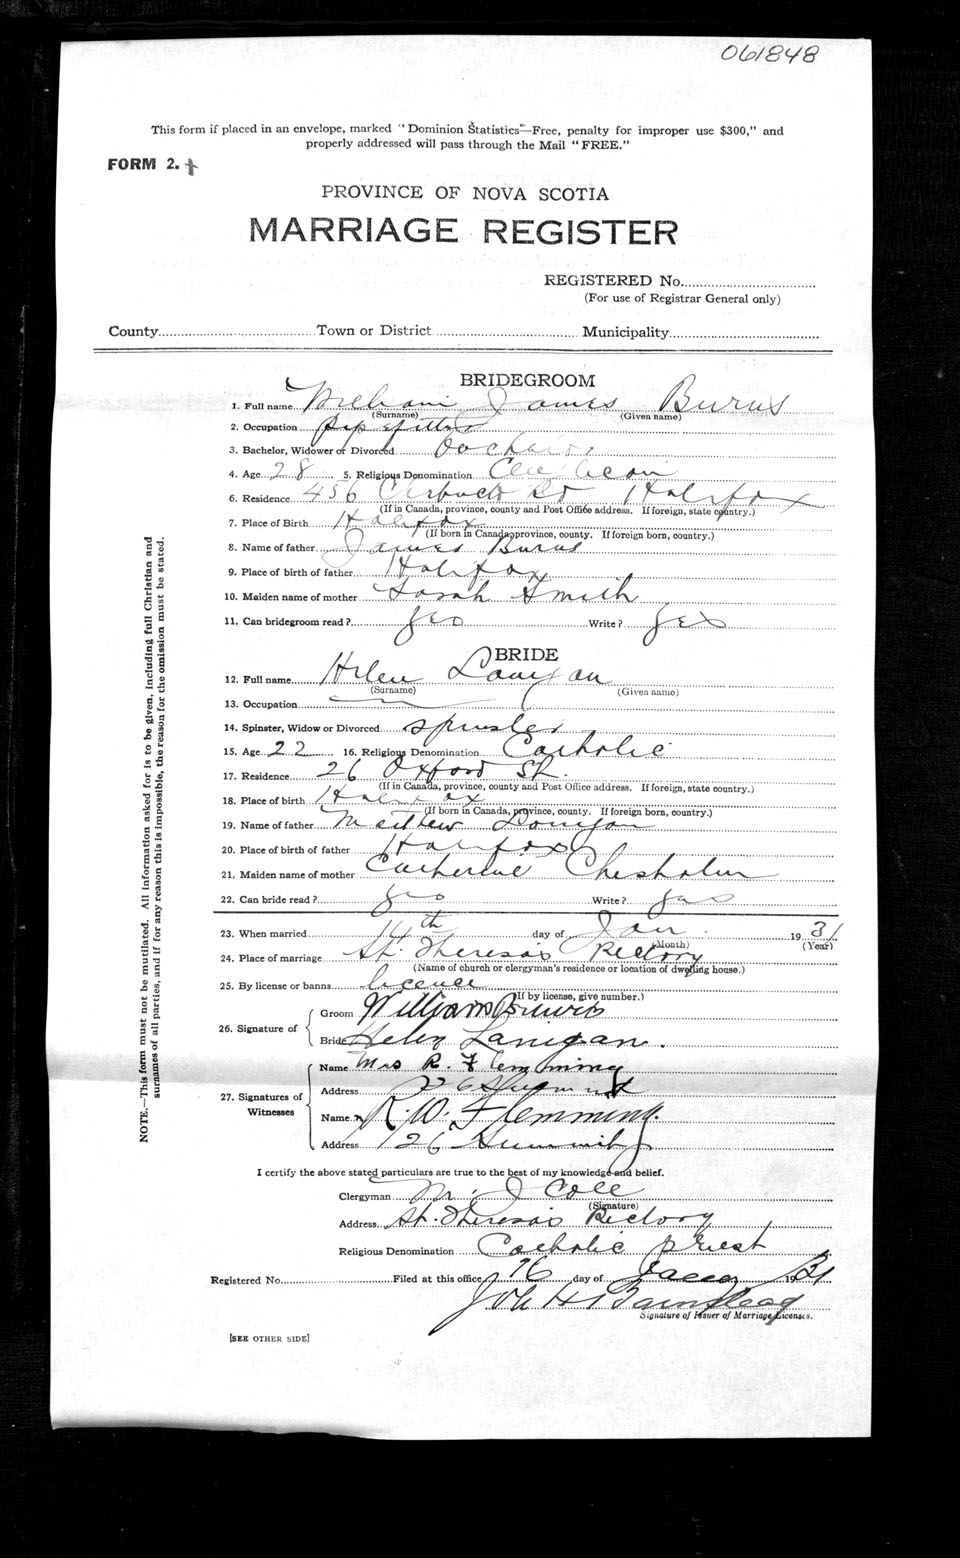 061848
This form if placed in an envelope, marked "Dominion Statistics—Free, penalty for improper use $300," and
properly addressed will pass through the Mail "FREE."
FORM 2.
PROVINCE OF NOVA SCOTIA
MARRIAGE REGISTER
REGISTERED No.
(For use of Registrar General only)
County Town or District Municipality
BRIDEGROOM
1. Full name William James Burns
(Surname) (Given name)
2. Occupation pipefitter
3. Bachelor, Widower or Divorced Bachelor
4. Age 28 5. Religious Denomination
6. Residence 456 St Halifax
(If in Canada, province, county and Post Office address. If foreign, state country.)
7. Place of Birth Halifax
(If born in Canada, province, county. If foreign born, country.)
8. Name of father James Burns
9. Place of birth of father Halifax
10. Maiden name of mother Sarah Smith
11. Can bridegroom read? yes Write? yes
BRIDE
12. Full name Helen Lanigan
(Surname) (Given name)
13. Occupation
14. Spinster, Widow or Divorced spinster
15. Age 22 16. Religious Denomination Catholic
17. Residence 26 Oxford St.
(If in Canada, province, county and Post Office address. If foreign, state country.)
18. Place of birth Halifax
(If born in Canada, province, county. If foreign born, country.)
19. Name of father Matthew Lanigan
20. Place of birth of father Halifax
21. Maiden name of mother Catherine Chisholm
22. Can bride read? yes Write? yes
23. When married 14th day of Jan. 1931
(Month) (Year)
24. Place of marriage St. Theresa's Rectory
(Name of church or clergyman's residence or location of dwelling house.)
25. By license or banns licence
(If by license, give number.)
26. Signature of
Groom William Burns
Bride Helen Lanigan.
27. Signatures of Witnesses
Name Mrs R. Flemming
Address 226
Name R. W. Flemming.
Address 126 Summit
I certify the above stated particulars are true to the best of my knowledge and belief.
Clergyman M. J Cole
(Signature)
Address St. Theresa's Rectory
Religious Denomination Catholic priest
Registered No. Filed at this office 16 day of 1931
Signature of Issuer of Marriage Licenses.
[SEE OTHER SIDE]
NOTE.—This form must not be mutilated. All information asked for is to be given, including full Christian and
surnames of all parties, and if for any reason this is impossible, the reason for the omission must be stated.